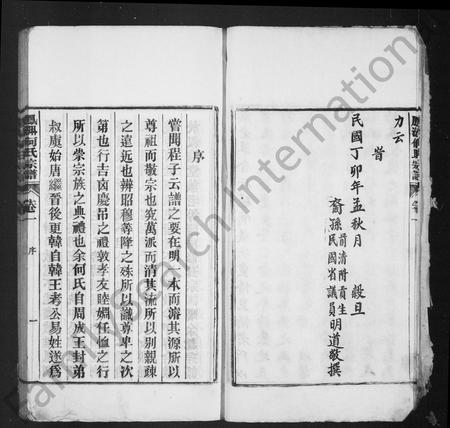 力云
旹
民國丁卯年孟秋月 穀旦
裔孫 前清附貢生 民國省議員 明道敬撰
序
嘗聞程子云譜之要在明一本而溯其源所以
尊祖而敬宗也究萬派而清其流所以別親疎
之遠近也辨昭穆等降之殊所以識尊卑之次
第也行吉凶慶吊之禮敦孝友睦婣任恤之行
所以崇宗族之典禮也余何氏自周成王封弟
叔虞始唐繼晉後更韓自韓王考公易姓遂爲
何氏宗譜
卷一
序
一
FamilySearch International